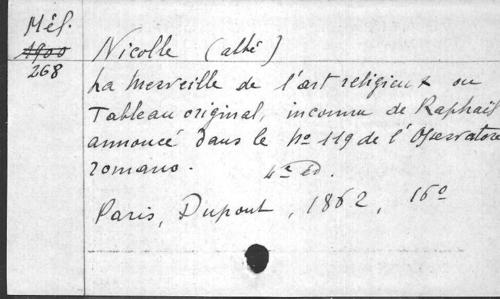 Mél.
1900
268
Nicolle (abbé)
La Merveille de l'art religieux ou
Tableau original, inconnu de Raphaël
annoncé dans le No 119 de l'Osservatore
romano. 4e éd.
Paris, Dupont, 1862, 16o